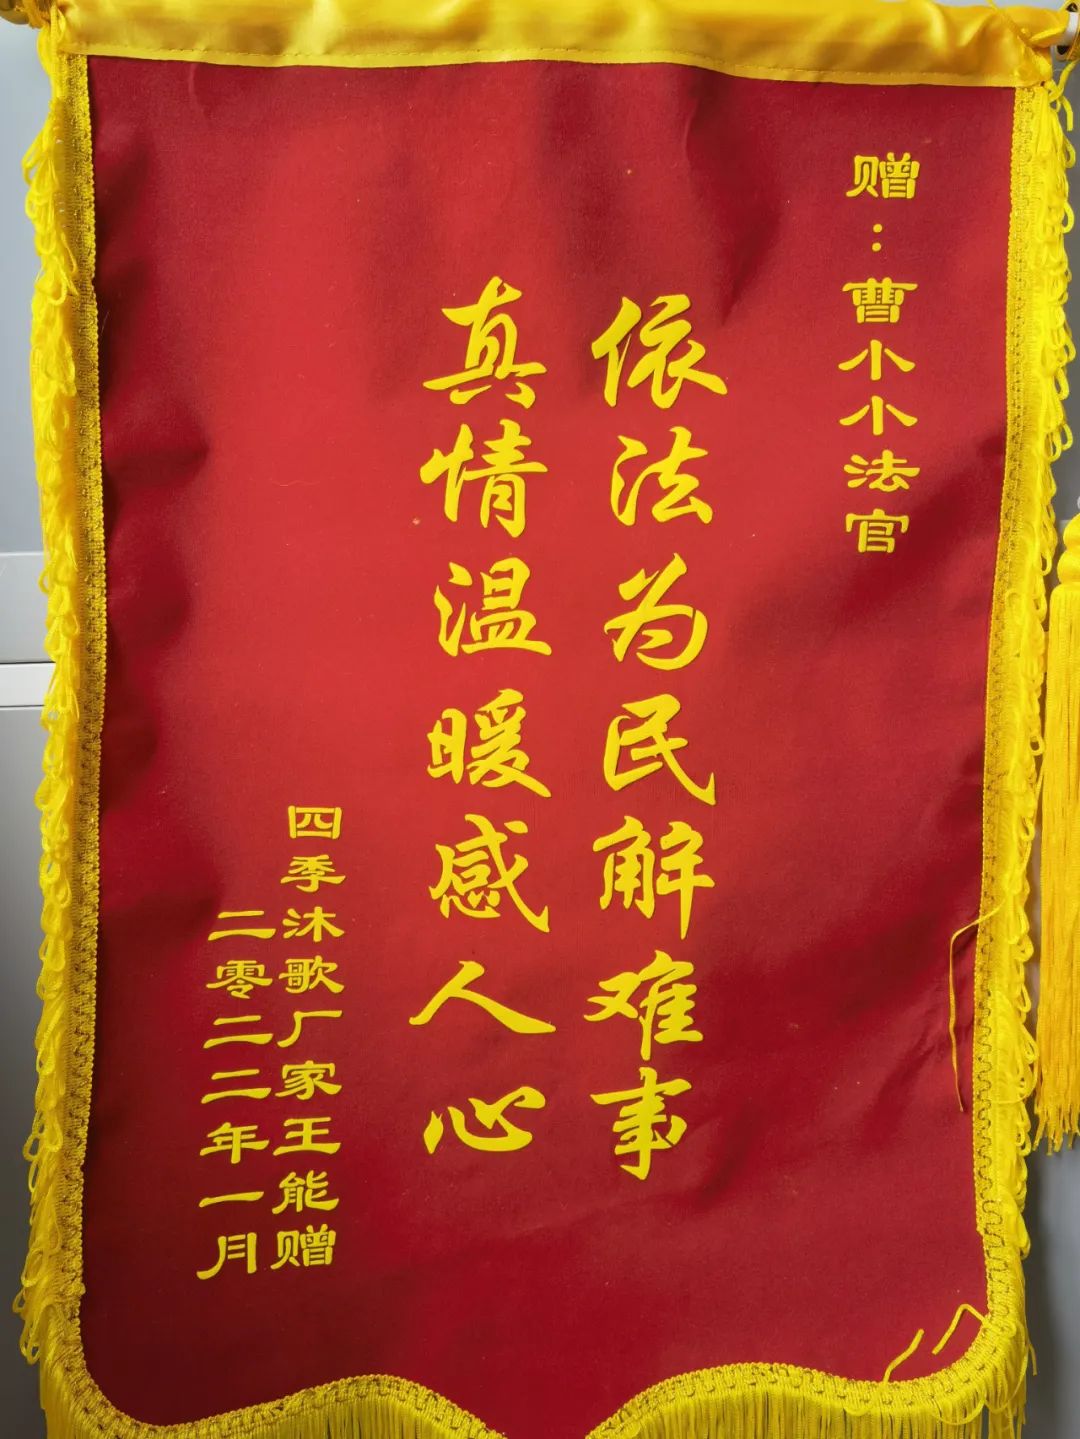 赠：曹小小法官
依法为民解难事
真情温暖感人心
四季沐歌厂家王能赠
二零二二年一月